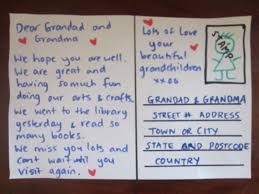 Dear Grandad and
Grandma
We hope you are well.
We are great and
having so much fun
doing our arts & crafts.
We went to the library
yesterday & read so
many books.
We miss you lots and
cant wait until you
visit again.
Lots of Love
your
beautiful
grandchildren
xx oo
STAMP
GRANDAD & GRANDMA
STREET # ADDRESS
TOWN OR CITY
STATE AND POSTCODE
COUNTRY